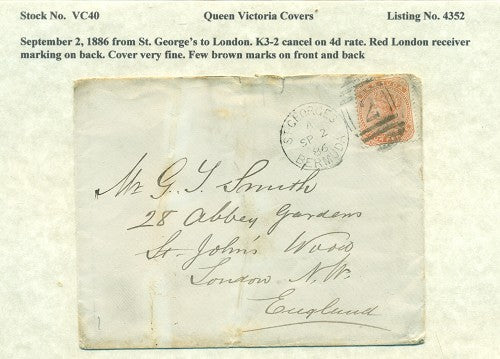 Stock No. VC40 Queen Victoria Covers Listing No. 4352
September 2, 1886 from St. George's to London. K3-2 cancel on 4d rate. Red London receiver
marking on back. Cover very fine. Few brown marks on front and back
ST GEORGES
A
SP 2
86
BERMUDA
Mr G. T. Smith
28 Abbey Gardens
St. John's Wood
London N.W.
England